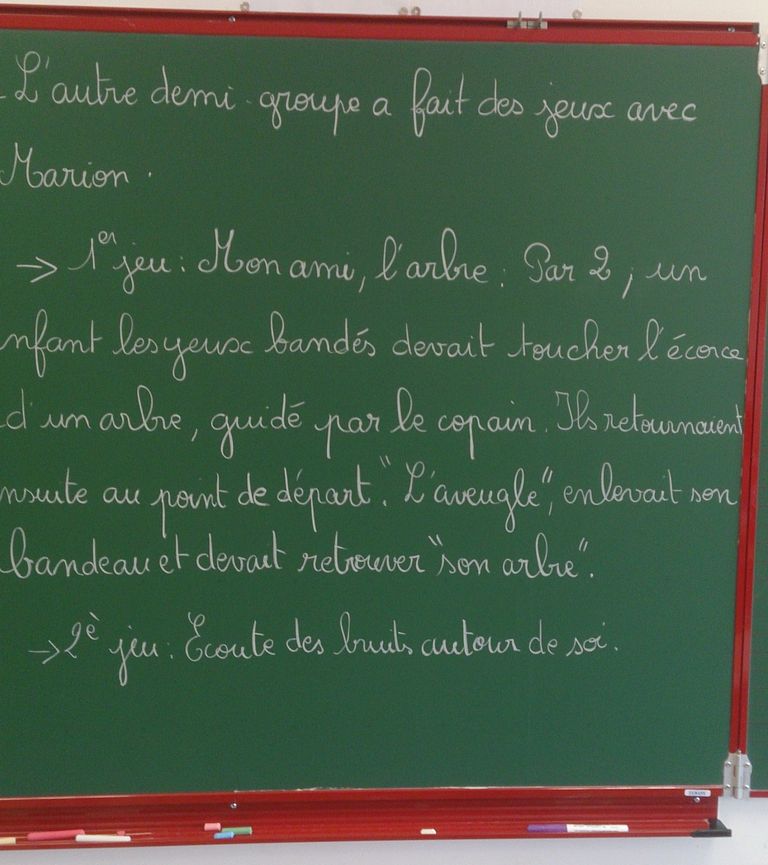 L'autre demi-groupe a fait des jeux avec
Marion.
→ 1er jeu : Mon ami, l'arbre : Par 2, un
nfant les yeux bandés devait toucher l'écorce
d'un arbre, guidé par le copain. Ils retournaient
nsuite au point de départ. "L'aveugle", enlevait son
bandeau et devait retrouver "son arbre".
→ 2è jeu : Ecoute des bruits autour de soi.